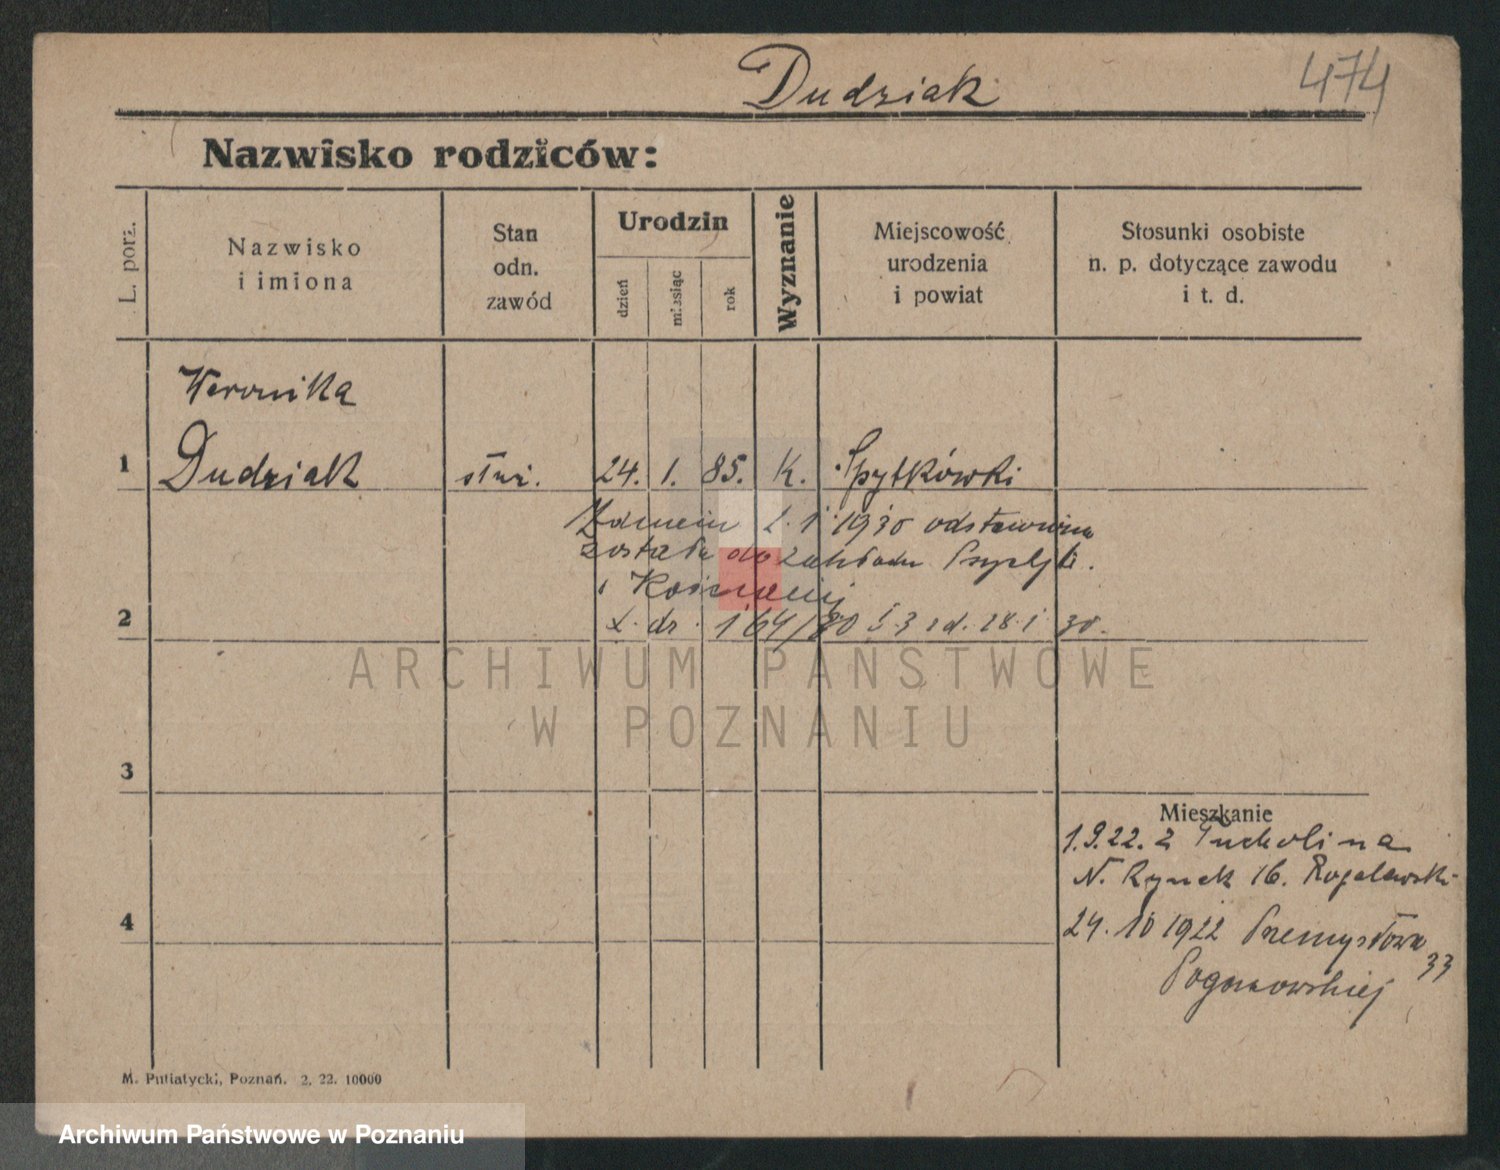 Dudziak
474
Nazwisko rodziców:
L. porz.
Nazwisko
i imiona
Stan
odn.
zawód
Urodzin
dzień
miesiąc
rok
Wyznanie
Miejscowość
urodzenia
i powiat
Stosunki osobiste
n. p. dotyczące zawodu
i t. d.
Weronika
1 Dudziak służ. 24. 1. 85. K. Spytkówki
1930 odstawiona
została do zakładu
2
164/30 28.1 30.
ARCHIWUM PAŃSTWOWE
W POZNANIU
3
Mieszkanie
1.9.22. z Tucholina
N. Rynek 16. Rogalewski
4
24. 10 1922 Przemysłowa
33
M. Putiatycki, Poznań. 2. 22. 10000
Archiwum Państwowe w Poznaniu